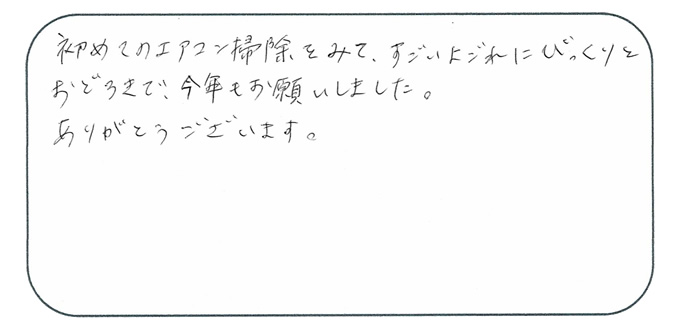 初めてのエアコン掃除をみて、すごいよごれにびっくりと
おどろきで、今年もお願いしました。
ありがとうございます。